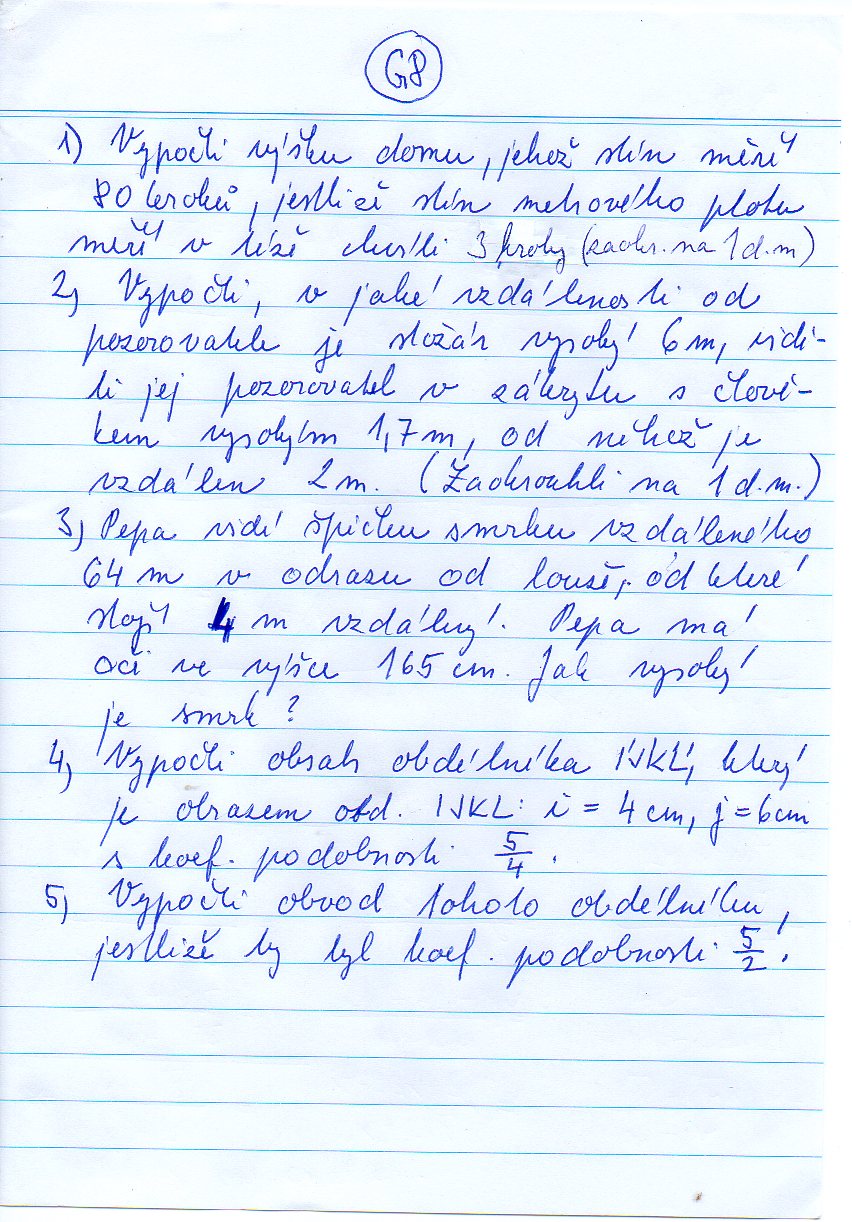 G8
1) Vypočti výšku domu, jehož stín měří
80 kroků, jestliže stín metrového plotu
měří v téže chvíli 3 kroky (zaokr. na 1 d. m)
2) Vypočti, v jaké vzdálenosti od
pozorovatele je stožár vysoký 6 m, vidí-
li jej pozorovatel v zákrytu s člově-
kem vysokým 1,7 m, od něhož je
vzdálen 2 m. (Zaokrouhli na 1 d. m.)
3) Pepa vidí špičku smrku vzdáleného
64 m v odrazu od louže, od které
stojí 4 m vzdálený. Pepa má
oči ve výšce 165 cm. Jak vysoký
je smrk?
4) Vypočti obsah obdélníka I'J'K'L', který
je obrazem obd. IJKL: i = 4 cm, j = 6 cm
s koef. podobnosti 5/4.
5) Vypočti obvod tohoto obdélníku,
jestliže by byl koef. podobnosti 5/2.